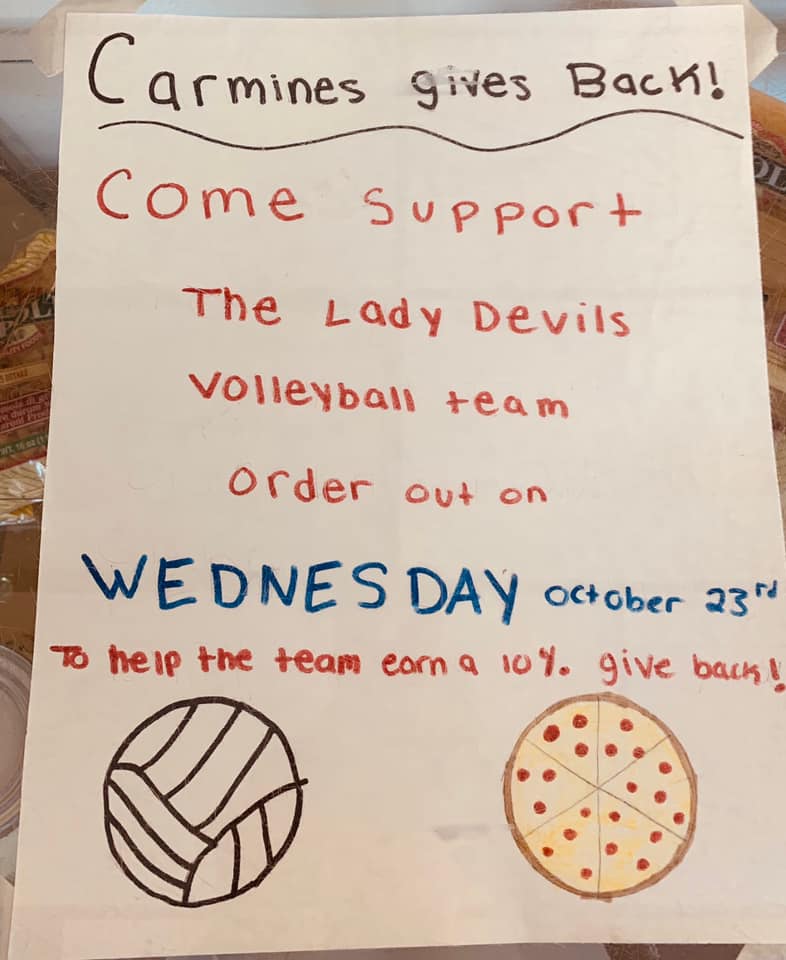 Carmines gives Back!
Come Support
The Lady Devils
Volleyball team
order out on
WEDNESDAY october 23rd
To help the team earn a 10% give back!